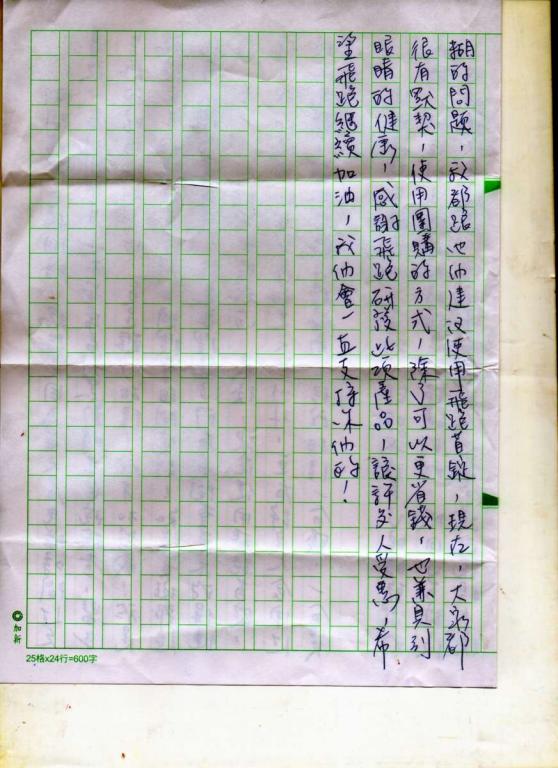 糊的問題，我都跟他們建議使用飛跑首錠，現在，大家都
很有默契，使用團購的方式，除了可以更省錢，也兼具到
眼睛的健康，感謝飛跑研發此項產品，讓許多人受惠，希
望飛跑繼續加油，我們會一直支持你們的！
加新
25格x24行=600字